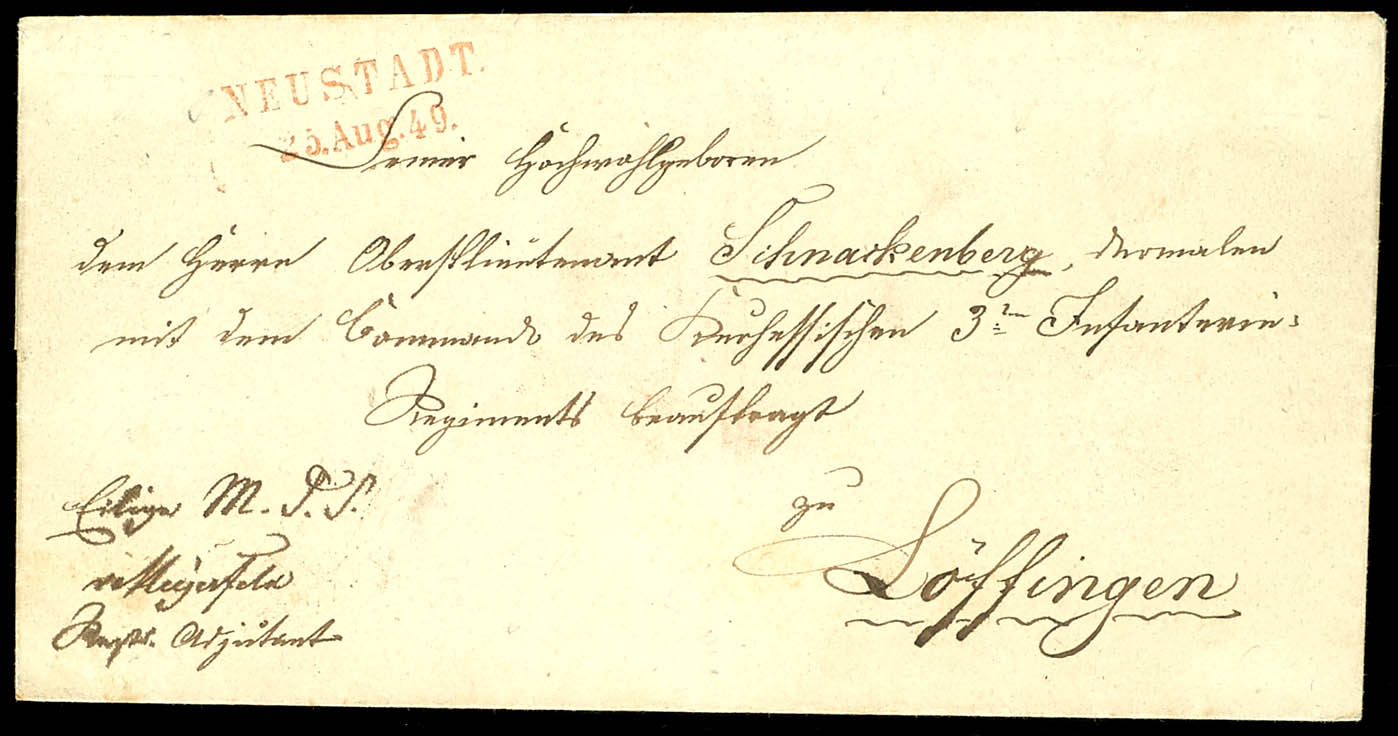 NEUSTADT.
25. Aug. 49.
Seiner Hochwohlgeboren
dem Herrn Oberstlieutenant Schnackenberg, dermalen
mit dem Commando des Kurhessischen 3ten Infanterie-
Regiments beauftragt
zu
Löffingen
Eilige M. D. S.
Regts. Adjutant